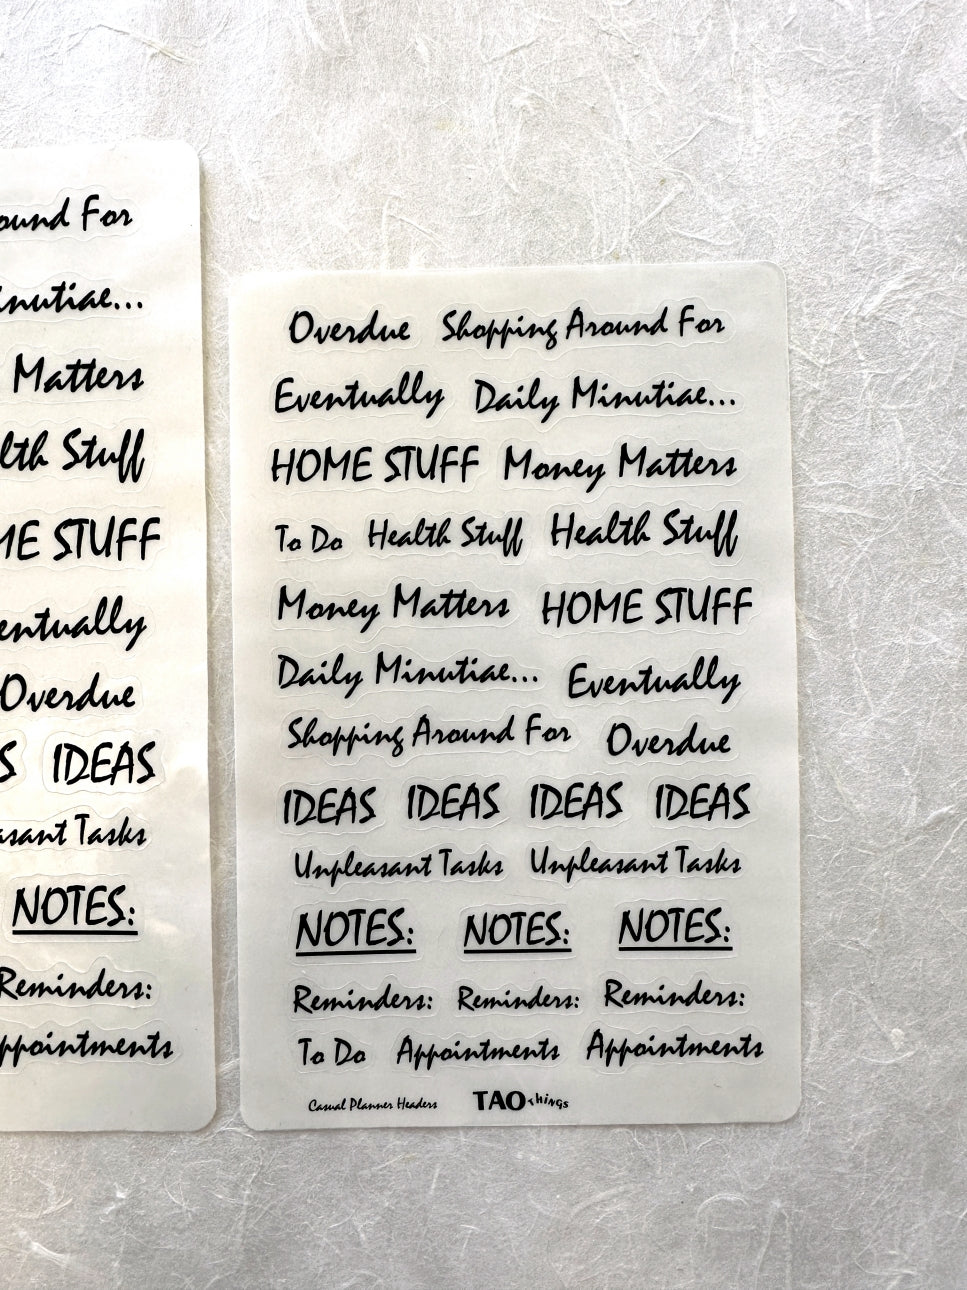 ound For
nutiae...
Matters
lth Stuff
ME STUFF
entually
Overdue
S IDEAS
asant Tasks
NOTES:
Reminders:
ppointments
Overdue Shopping Around For
Eventually Daily Minutiae...
HOME STUFF Money Matters
To Do Health Stuff Health Stuff
Money Matters HOME STUFF
Daily Minutiae... Eventually
Shopping Around For Overdue
IDEAS IDEAS IDEAS IDEAS
Unpleasant Tasks Unpleasant Tasks
NOTES: NOTES: NOTES:
Reminders: Reminders: Reminders:
To Do Appointments Appointments
Casual Planner Headers TAO things